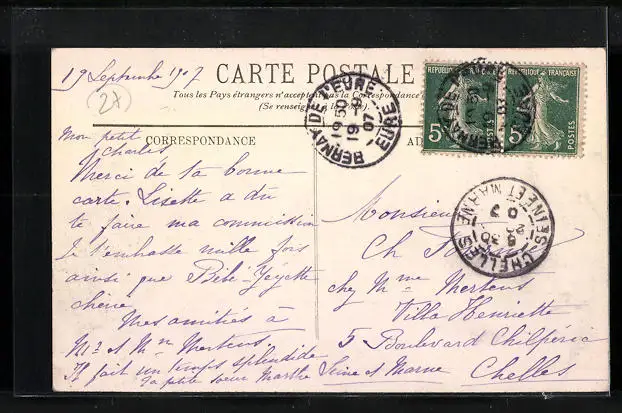 19 Septembre 1907
CARTE POSTALE
Tous les Pays étrangers n'acceptent pas la Correspondance
(Se renseigner
CORRESPONDANCE
(27)
Mon petit
Charles
Merci de ta bonne
carte. Lisette a dû
te faire ma commission
Je t'embrasse mille fois
ainsi que Bébé-Yeyette
chérie
Mes amitiés à
Mr et Mme Mertens
Il fait un temps splendide
Ta petite soeur Marthe
Monsieur
Ch
chez Mme Mertens
Villa Henriette
5 Boulevard Chilpéric
Seine et Marne Chelles
BERNAY DE L'EURE
19 50
19 -9
07
EURE
REPUBLIQUE FRANÇAISE
5c
POSTES
CHELLES
SEINE ET MARNE